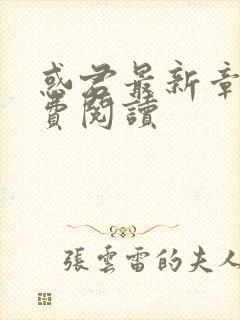 惑君最新章
費閱讀
張雲雷的夫人